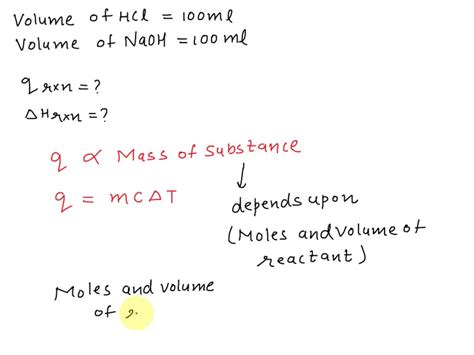 Volume of HCl = 100ml
Volume of NaOH = 100ml
q rxn = ?
ΔH rxn = ?
q ∝ Mass of Substance
q = mCΔT
depends upon
(Moles and volume of
reactant)
Moles and volume
of